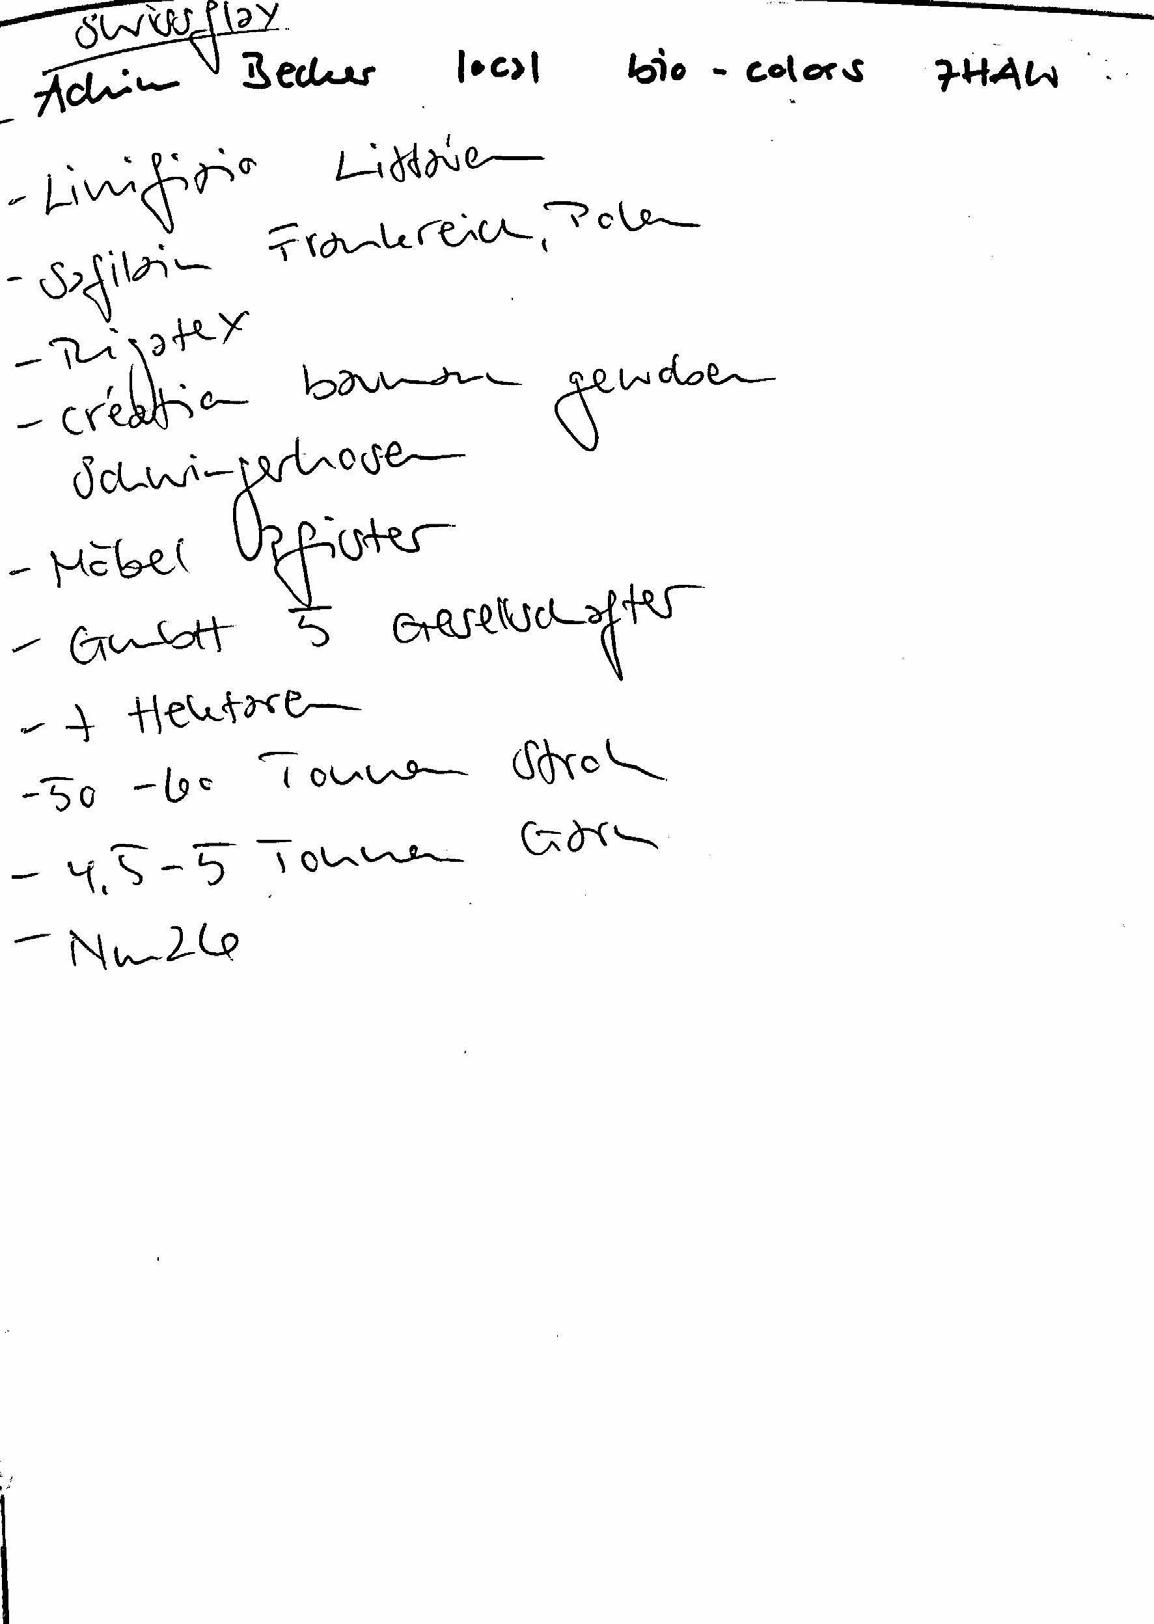 Swissflax
- Adrian Becker local bio-colors ZHAW
- Linificio Italien
- Safilin Frankreich, Polen
- Rigotex
- création baumann gewoben
Schwingerhosen
- Möbel Pfister
- GmbH 5 Gesellschafter
- + Hektaren
- 50 - 60 Tonnen Stroh
- 4,5 - 5 Tonnen Garn
- Nm 26